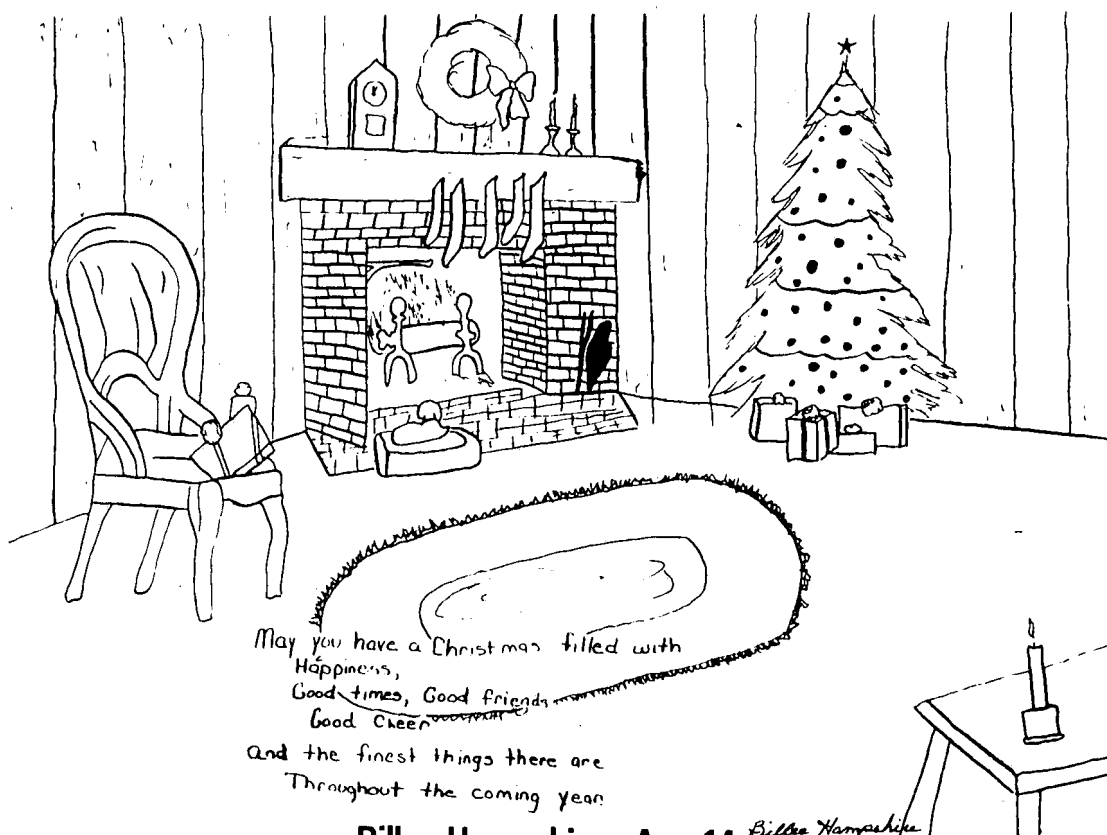 May you have a Christmas filled with
Happiness,
Good times, Good friends
Good Cheer
and the finest things there are
Throughout the coming year
Billee Hampshire